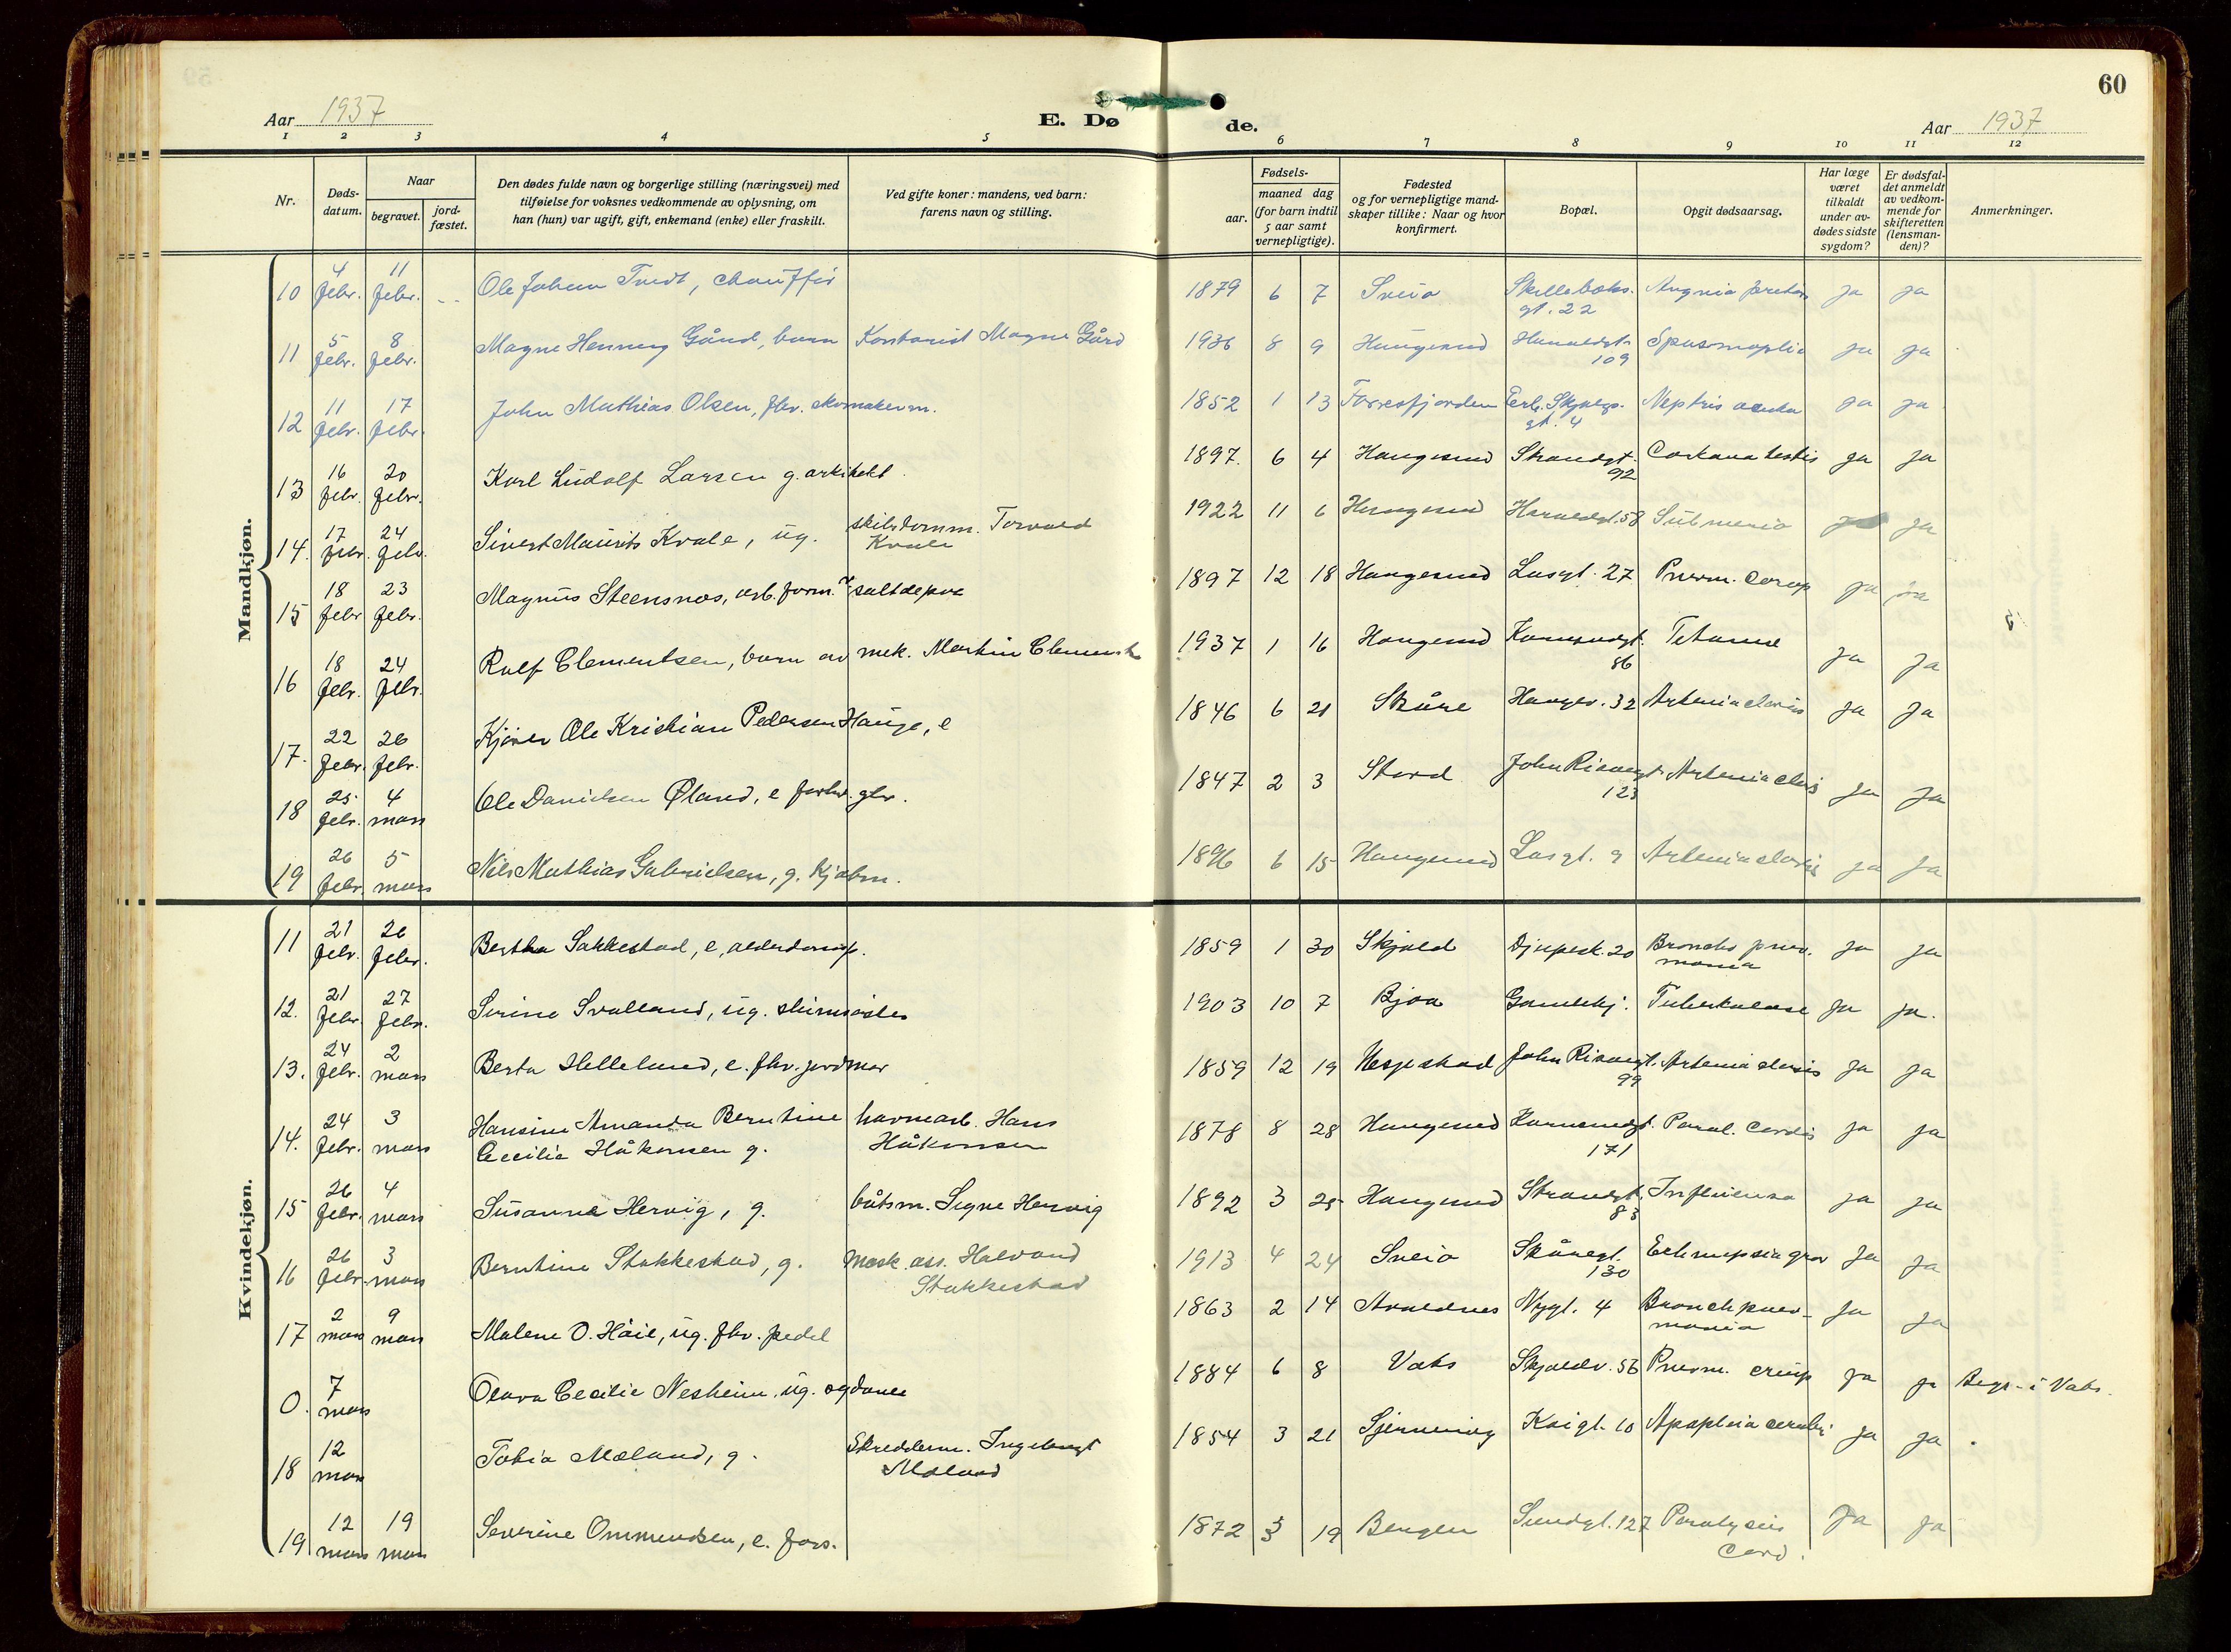 60
Aar 1937
E. Døde.
Aar 1937
1 2 3 4 5 6 7 8 9 10 11 12
Nr.
Døds-datum.
Naar
begravet.
jord-fæstet.
Den dødes fulde navn og borgerlige stilling (næringsvei) med
tilføielse for voksnes vedkommende av oplysning, om
han (hun) var ugift, gift, enkemand (enke) eller fraskilt.
Ved gifte koner: mandens, ved barn:
farens navn og stilling.
Fødsels-
aar.
maaned dag
(for barn indtil
5 aar samt
vernepligtige).
Fødested
og for vernepligtige mand-
skaper tillike: Naar og hvor
konfirmert.
Bopæl.
Opgit dødsaarsag.
Har læge
været
tilkaldt
under av-
dødes sidste
sygdom?
Er dødsfal-
det anmeldt
av vedkom-
mende for
skifteretten
(lensman-
den)?
Anmerkninger.
Mandkjøn.
10 4 febr. 11 febr. Ole Johan Tvedt, chauffør 1879 6 7 Sveio gt. 22 Angina ja ja
11 5 febr. 8 febr. Magne Henning Gård, barn Kontorist Magne Gård 1936 8 9 Haugesund Haraldsgt. 109 ja ja
12 11 febr. 17 febr. John Mathias Olsen, fhv. skomakerm. 1852 1 13 Førresfjorden gt. 4 ja ja
13 16 febr. 20 febr. Karl Ludolf Larsen g. arkitekt 1897. 6 4 Haugesund Strandgt. 92 ja ja
14. 17 febr. 24 febr. Sivert Maurits Kvale, ug. Torvald Kvale 1922 11 6 Haugesund Haraldsgt. 58 ja ja
15 18 febr 23 febr. Magnus Steensnes, arb. form. saltdepot 1897 12 18 Haugesund Lasgt. 27 Pneum. ja ja
16 18 febr. 24 febr. Rolf Clementsen, barn av mek. Martin Clements 1937 1 16 Haugesund Karmsundgt. 86 ja ja
17. 22 febr. 26 febr. Ole Kristian Pedersen Hauge, e 1846 6 21 Skåre Haugev. 32 ja ja
18 25 febr. 4 mars Ole Danielsen Øland, e 1847 2 3 Stord John Risøengt. 123 ja ja
19 26 febr. 5 mars Nils Mathias Gabrielsen, g. kjøbm. 1896 6 15 Haugesund Lasgt. 9 ja ja
Kvindekjøn.
11 21 febr. 26 febr. Bertha Sakkestad, e, 1859 1 30 Skjold Djupesk. 20 Broncho pneu. monia ja ja
12. 21 febr. 27 febr. Serine Svolland, ug. 1903 10 7 Bjoa Tuberkulose ja ja.
13. 24 febr. 2 mars Berta Helleland, e. fhv. jordmor 1859 12 19 John Risøengt. 99 ja ja
14. 24 febr. 3 mars Hansine Amanda Berntine Cecilie Håkonsen g. havnearb. Hans Håkonsen 1878 8 28 Haugesund Karmsundgt. 171 Paral. cordis ja ja
15 26 febr. 4 mars Susanna Hervig, g. båtsm. Signe Hervig 1892 3 25 Haugesund Strandgt. 83 Influensa ja ja
16 26 febr. 3 mars Berntine Stakkestad, g. Mask. ass. Halvard Stakkestad 1913 4 24 Sveio Skåregt. 130 Eclampsia grav ja ja
17 2 mars 9 mars Malene O. Håie, ug. fhv. pedel 1863 2 14 Avaldnes Nygt. 4 Bronchpneu-monia ja ja
0. 7 mars Olava Cecilie Nesheim, ug. 1884 6 8 Vats Skjoldv. 56 Pneum. crup ja ja Begr. i Vats.
18 12 mars Tobia Mæland, g. Skredderm. Ingebregt Mæland 1854 3 21 Sjernerøy Kaigt. 10 Apoplexia cerebri ja ja
19 12 mars 19 mars Severine Ommundsen, e. fors. 1872 19 Bergen Sundgt. 127 Paralysis Card. ja ja